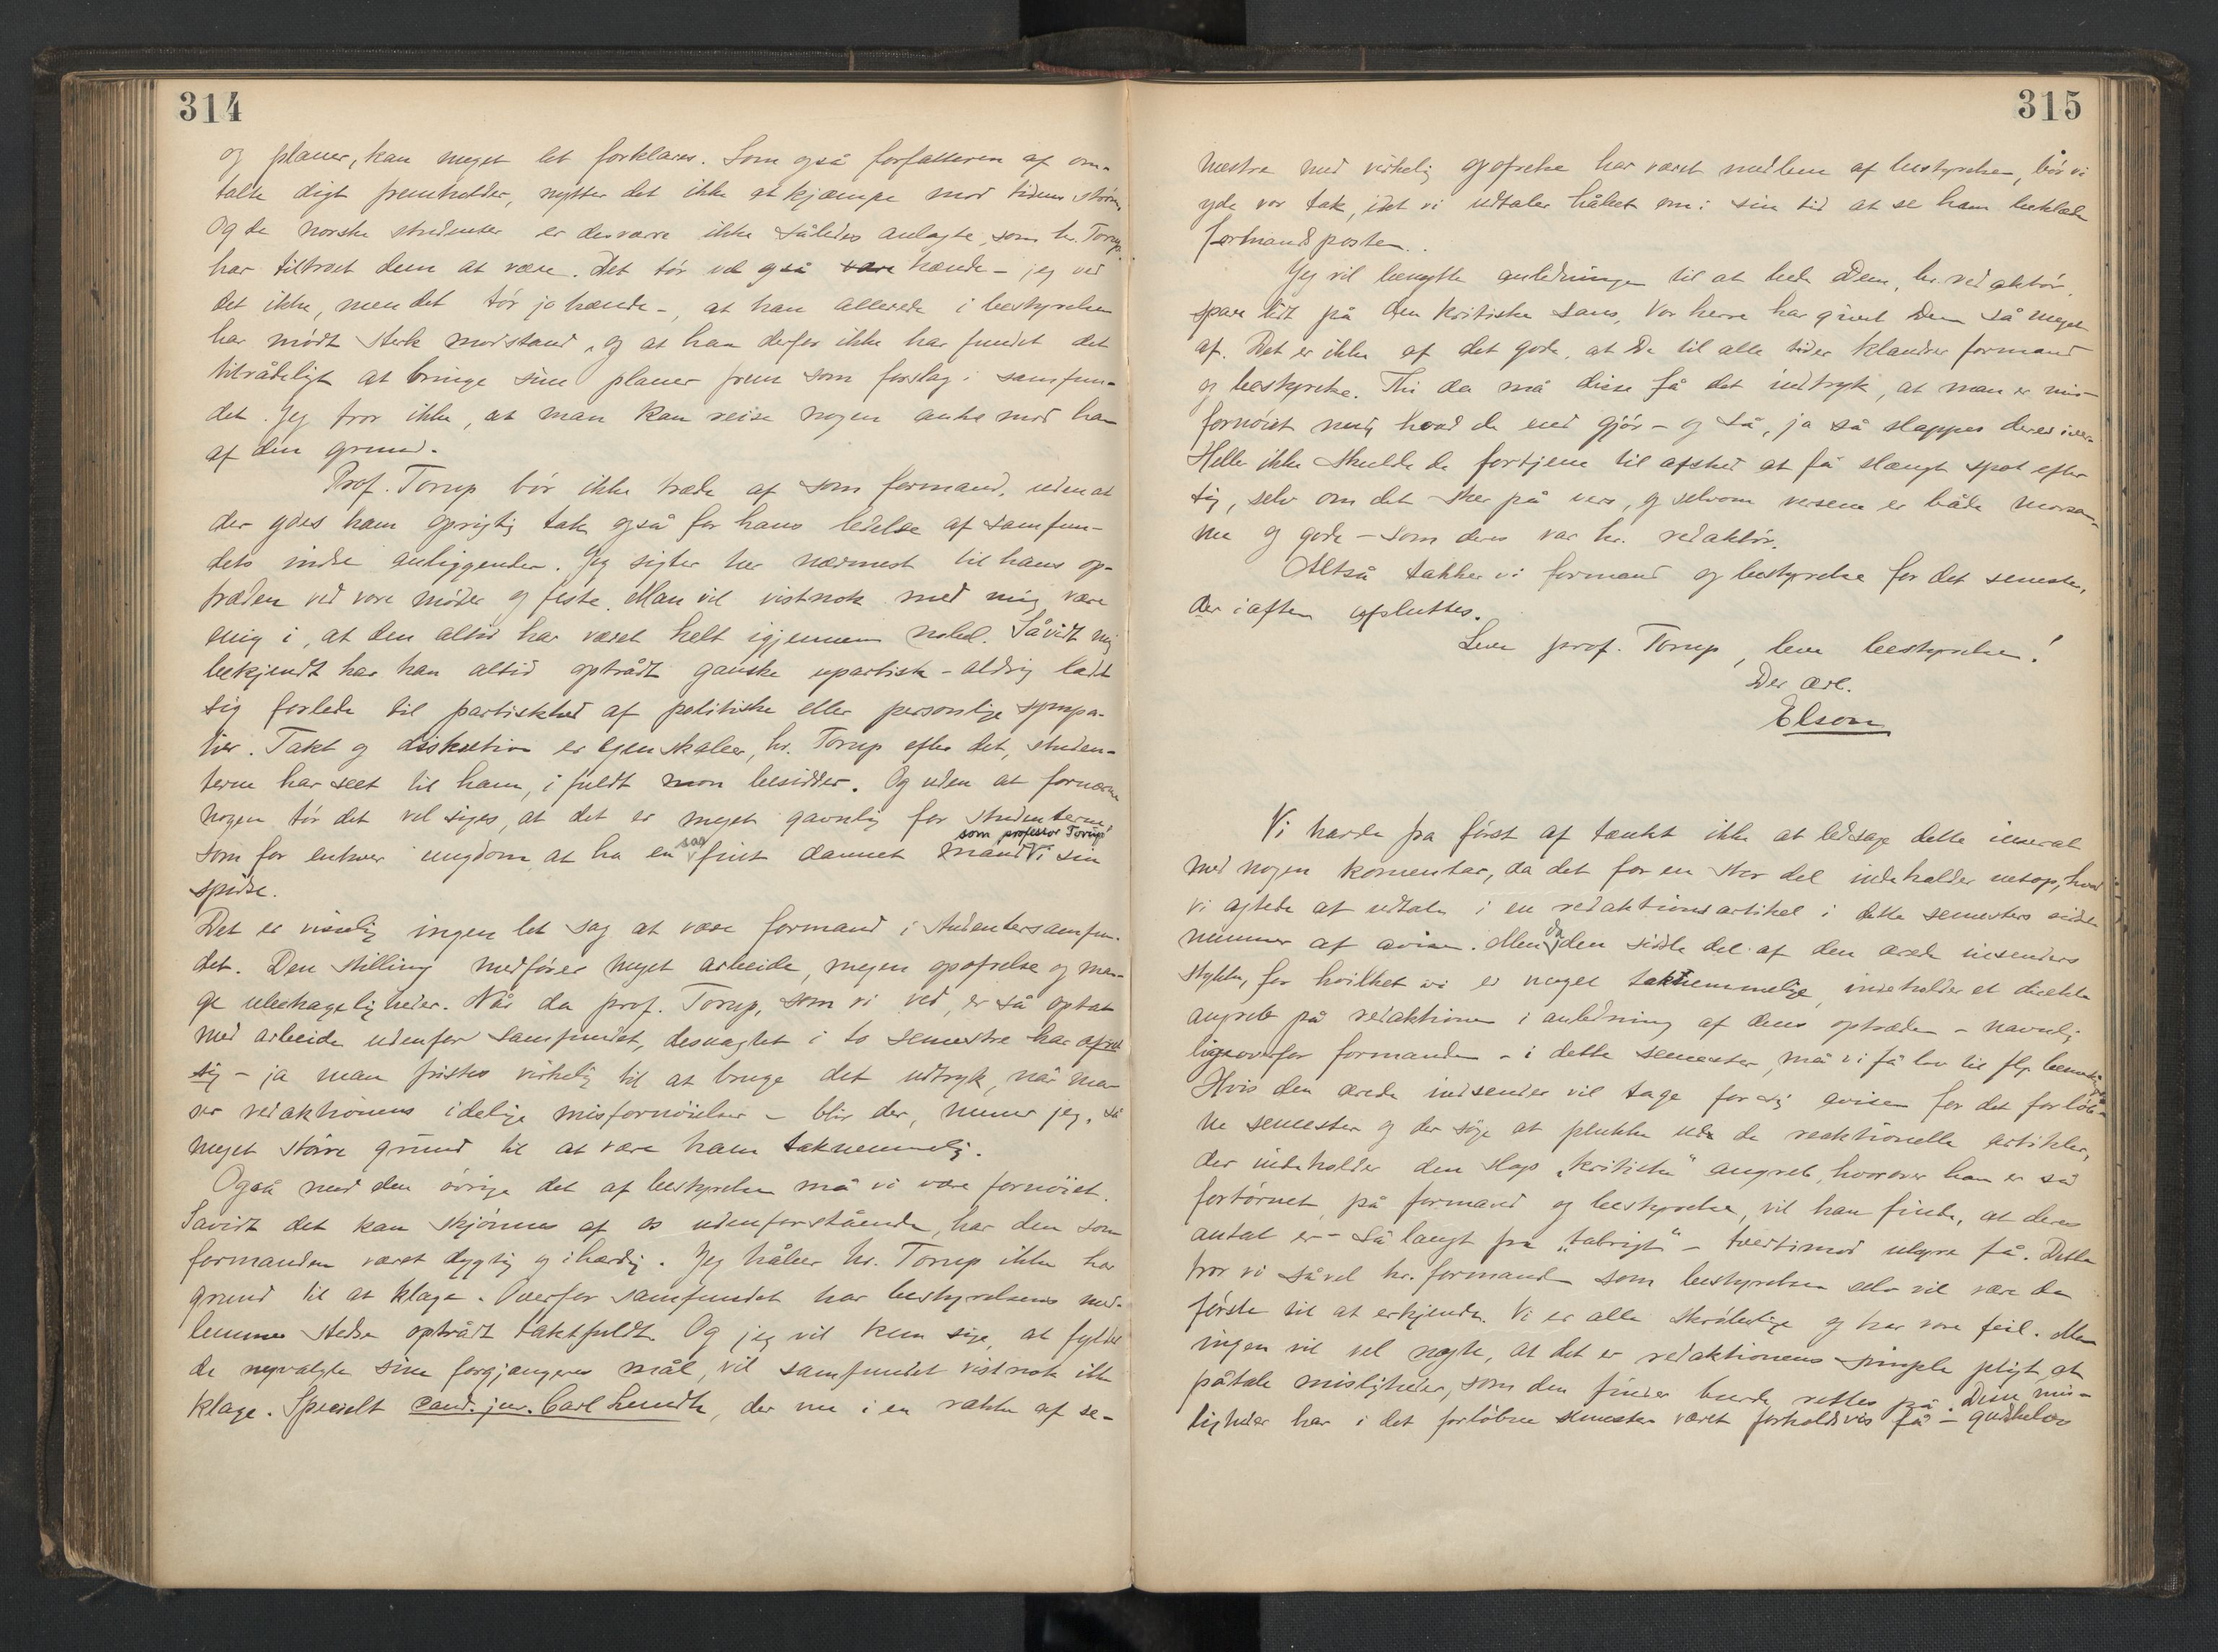 314
og planer, kan meget let forklares. Som også forfatteren af om-
talte digt fremholder, nytter det ikke at kjæmpe mod tidens strøm.
Og de norske studenter er desværre ikke således anlagte, som hr. Torup
har tiltroet dem at være. Det tør vel også hænde – jeg ved
det ikke, men det tør jo hænde –, at han allerede i bestyrelsen
har mødt sterk modstand, og at han derfor ikke har fundet det
tilrådeligt at bringe sine planer frem som forslag i samfun-
det. Jeg tror ikke, at man kan reise nogen anke mod ham
af den grund.
Prof. Torup bør ikke træde af som formand, uden at
der ydes ham oprigtig tak også for hans ledelse af samfun-
dets indre anliggender. Jeg sigter her nærmest til hans op-
træden ved vore møder og feste. Man vil vistnok med mig være
enig i, at den altid har været helt igjennem nobel. Såvidt mig
bekjendt har han altid optrådt ganske upartisk – aldrig ladt
sig forlede til partiskhed af politiske eller personlige sympa-
tier. Takt og diskretion er egenskaber, hr. Torup efter det, studen-
terne har seet til ham, i fuldt mon besidder. Og uden at fornærme
nogen tør det vel siges, at det er meget gavnlig for studenterne,
som for enhver ungdom, at ha en saa fint dannet mand som professor Torup i sin
spidse.
Det er visselig ingen let sag at være formand i Studentersamfun-
det. Den stilling medfører meget arbeide, megen opofrelse og man-
ge ubehageligheder. Når da prof. Torup, som vi ved, er så optat
med arbeide udenfor samfundet, desuagtet i to semestre har ofret
sig – ja man fristes virkelig til at bruge det udtryk, når man
ser redaktionens idelige misfornøielser – blir der, mener jeg, så
meget større grund til at være ham taknemmelig.
Også med den øvrige del af bestyrelsen må vi være fornøiet.
Såvidt det kan skjønnes af os udenforstående, har den som
formanden været dygtig og ihærdig. Jeg håber hr. Torup ikke har
grund til at klage. Overfor samfundet har bestyrelsens med-
lemmer stedse optrådt taktfuldt. Og jeg vil kun sige, at fylder
de nyvalgte sine forgjængeres mål, vil samfundet vistnok ikke
klage. Specielt cand. jur. Carl Lundh, der nu i en række af se-
315
mestre med virkelig opofrelse har været medlem af bestyrelsen, bør vi
yde vor tak, idet vi udtaler håbet om i sin tid at se ham beklæde
formandsposten.
Jeg vil benytte anledningen til at bede Dem, hr. redaktør,
spare lidt på den kritiske sans, Vor herre har givet Dem så meget
af. Det er ikke af det gode, at De til alle tider klandrer formand
og bestyrelse. Thi da må disse få det indtryk, at man er mis-
fornøiet med, hvad de end gjør – og så, ja så slappes deres iver.
Heller ikke skulde de fortjene til afsked at få slængt spot efter
sig, selv om det sker på vers, og selvom versene er både morsom-
me og gode – som deres var hr. redaktør.
Altså takker vi formand og bestyrelse for det semester,
der iaften afsluttes.
Leve prof. Torup, leve bestyrelsen!
Der ær.
Elson
Vi havde fra først af tænkt ikke at ledsage dette inserat
med nogen komentar, da det for en stor del indeholder netop, hvad
vi agtede at udtale i en redaktionsartikel i dette semesters sidste
nummer af avisen. Men da den sidste del af den ærede indsenders
stykke, for hvilket vi er meget taknemmelige, indeholder et direkte
angreb på redaktionen i anledning af dens optræden – navnlig
ligeoverfor formanden – i dette semester, må vi få lov til flg. bemærkninger
Hvis den ærede indsender vil tage for sig avisen for det forløb-
ne semester og der søge at plukke ud de redaktionelle artikler,
der indeholder den slags „kritiske" angreb, hvorover han er så
fortørnet, på formand og bestyrelse, vil han finde, at deres
antal er – så langt fra „talrigt" – tvertimod uhyre få. Dette
tror vi såvel hr. formand som bestyrelsen selv vil være de
første til at erkjende. Vi er alle skrøbelige og har vore feil. Men
ingen vil vel negte, at det er redaktionens simple pligt at
påtale misligheder, som den finder burde rettes på. Disse mis-
ligheder har i det forløbne semester været forholdsvis få – gudskelov